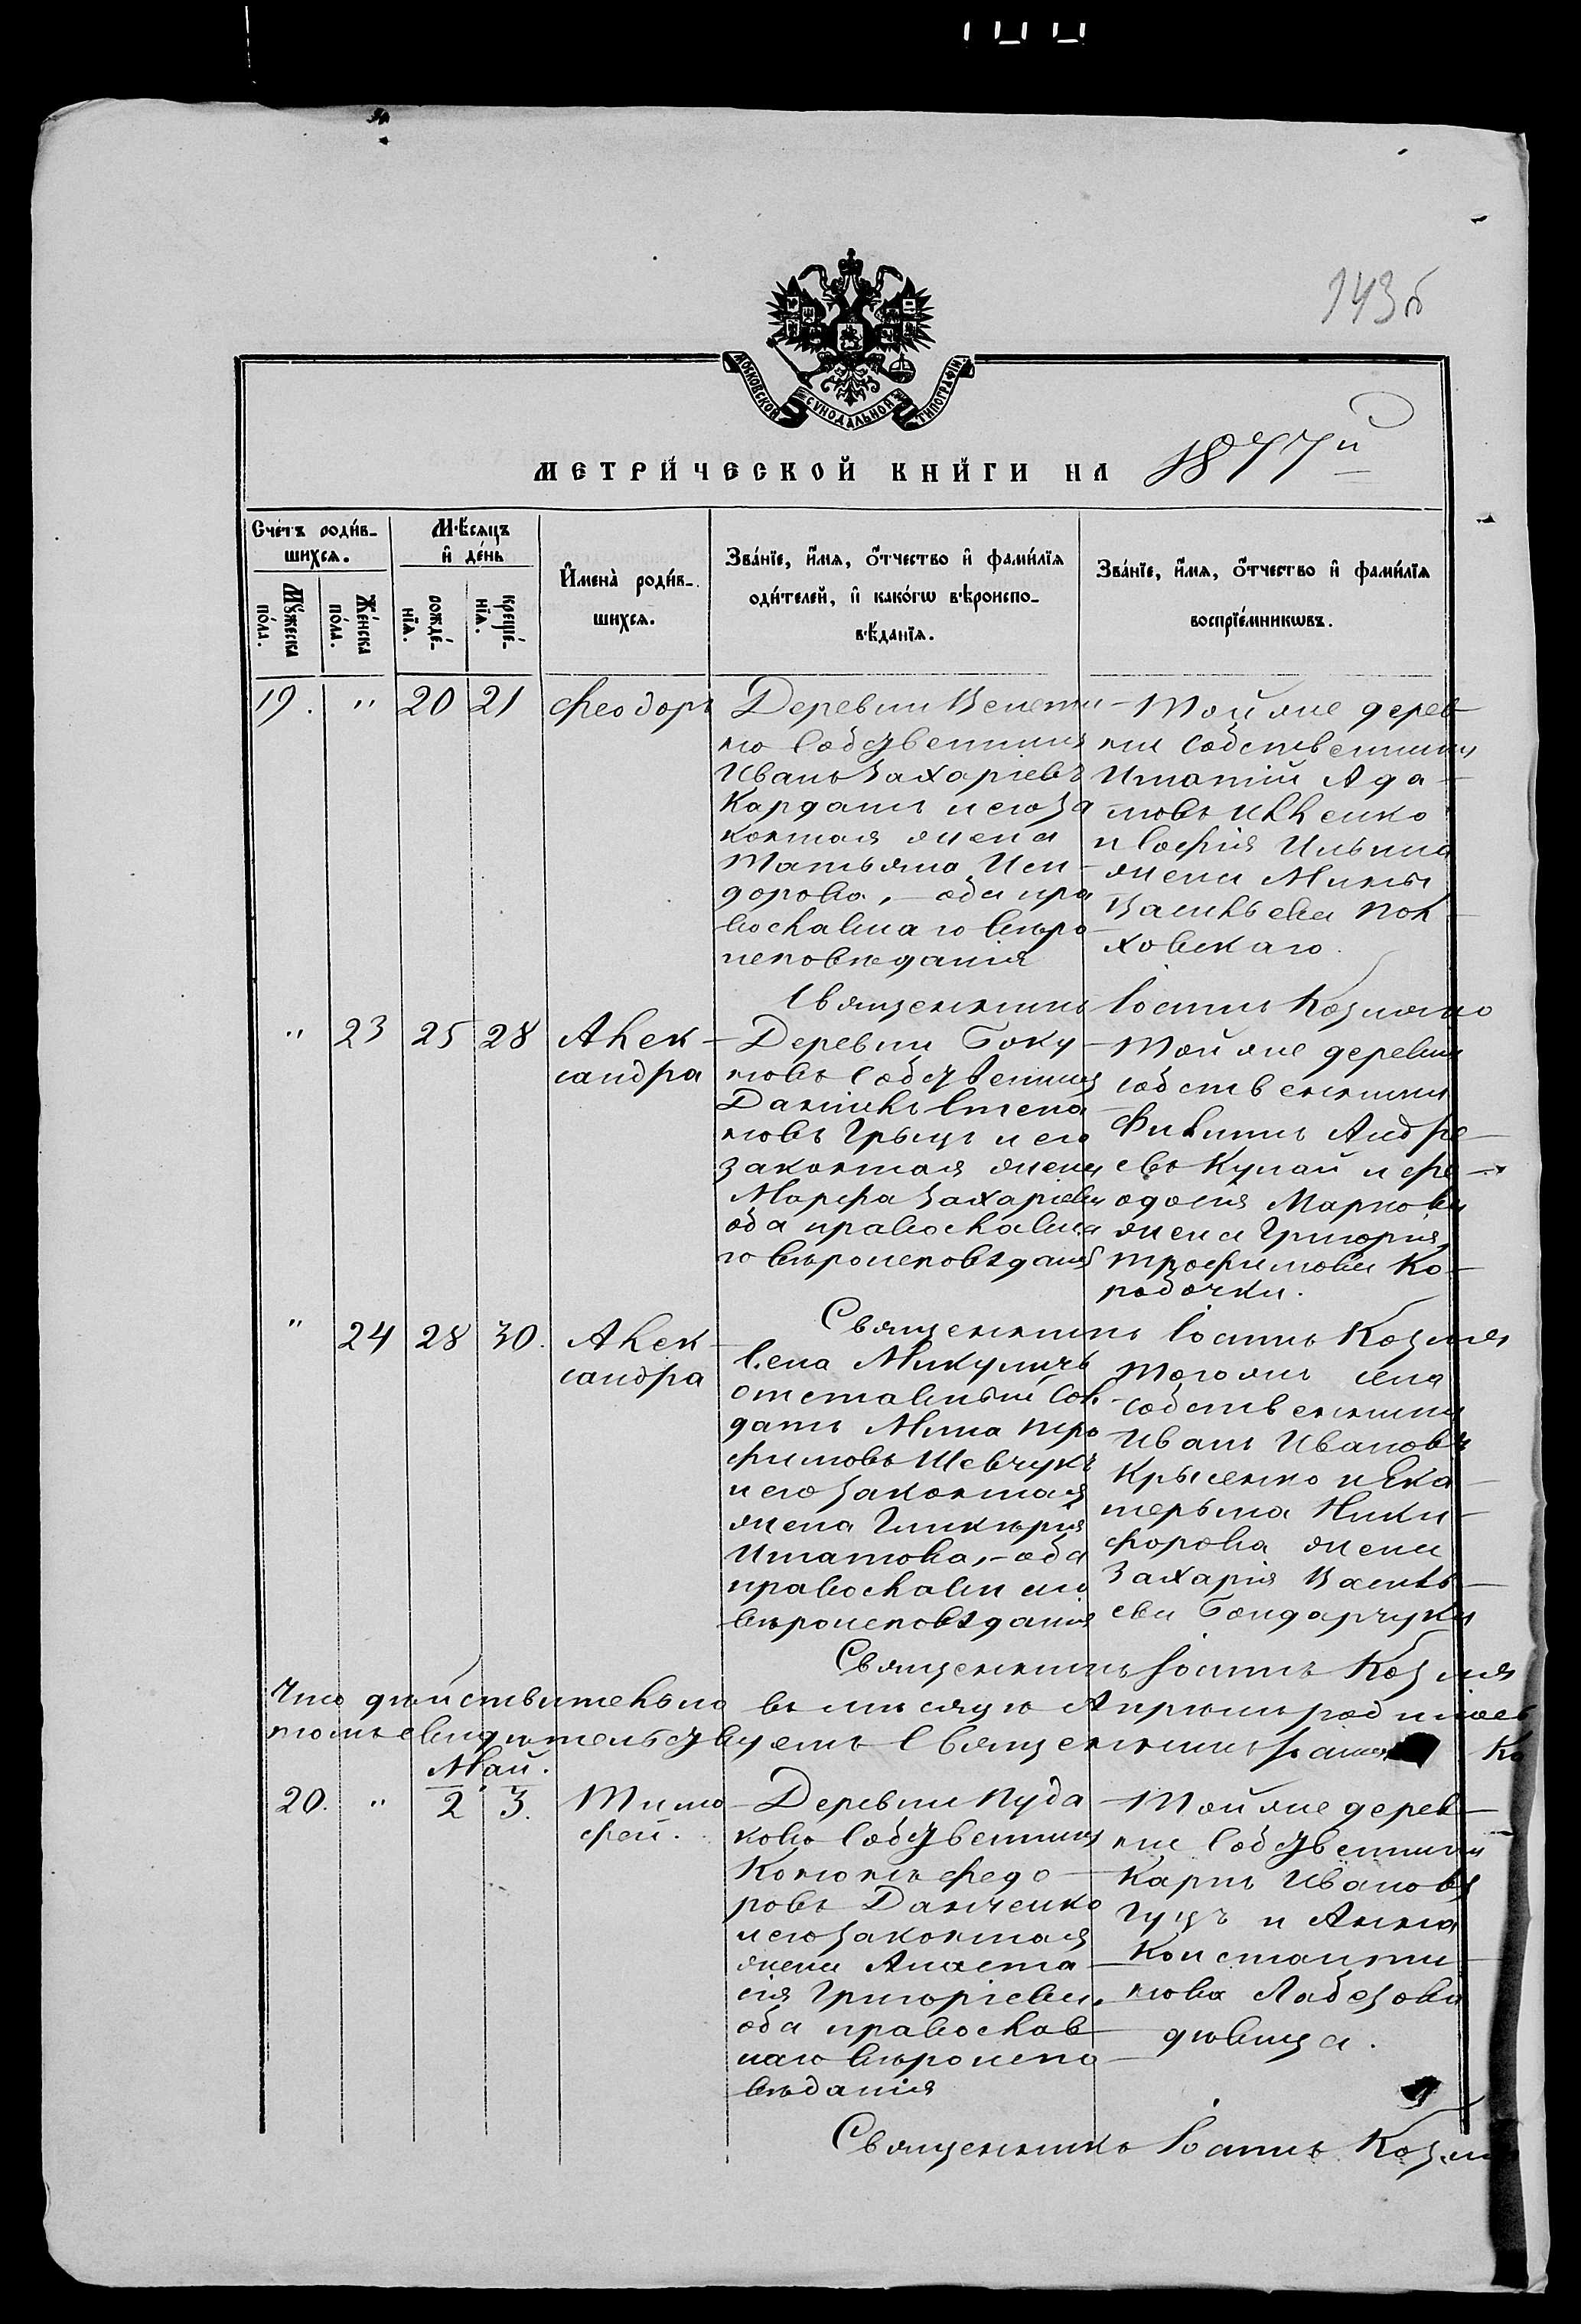 143б
МОСКОВСКОЙ СѴНОДАЛЬНОЙ ТИПОГРАФІИ.
МЕТРИ́ЧЕСКОЙ КНИ́ГИ НА 1877й
Счетъ роди́в-
шихся.
Мѣ́сяцъ
и҆ де́нь
И҆мена̀ роди́в-
шихся.
Зва́нїе, и҆́мя, ѻ҆́тчество и҆ фами́лїя
оди́телей, и҆ како́гѡ вѣроиспо-
вѣ́данїя.
Зва́нїе, и҆́мя, ѻ҆́тчество и҆ фами́лїя
воспрїе́мникѡвъ.
Мꙋ́жеска
по́ла.
Же́нска
по́ла.
рожде́-
нїя.
креще́-
нїя.
19. " 20 21 Феодоръ
Деревни
го Собственникъ
Иванъ Захаріевъ
Карданъ и его за
конная жена
Татьяна Иси-
дорова, - оба пра
вославнаго вѣро
исповѣданія
Той же дерев
ни собственникъ
Игнатій Ада-
мовъ
и Софія Ильина
жена Мины
Васильева Пол
ховскаго.
Священникъ Іоаннъ Козмяно
" 23 25 28 Алек-
сандра
Деревни Боку
мовъ Собственник
Даніилъ Степа
новъ Грыцъ и его
законная жена
Марфа Захаріева
оба православна
го вѣроисповѣданія
Той же деревни
собственникъ
Филипъ Андре-
евъ Кунай и Фе-
одосія Маркова
жена Григорія
Трофимова Ко-
робочки.
Священникъ Іоаннъ Козмя
" 24 28 30. Алек
сандра
Села Микуличъ
отставный Сол
датъ Мина Тро
фимовъ Шевчукъ
и его законная
жена Гликирія
Игнатова, - оба
православнаго
вѣроисповѣданія
Того же села
собственникъ
Иванъ Ивановъ
Крысенко и Ека-
терына Ники-
форова жена
Захарія Василь-
ева Бондарчука
Священникъ Іоаннъ Козмя
Что дѣйствительно въ мѣсяцѣ Апрѣлѣ
томъ свидѣтельствуемъ Священникъ Іоаннъ Ко
Май.
20. " 2 3. Тимо
фей.
Деревни Пуда
ково Собственник
Кононъ Федо-
ровъ Данченко
и его законная
жена Анаста-
сія Григоріева,
оба православ
наго вѣроиспо-
вѣданія
Той же дерев-
ни Собственникъ
Карпъ Ивановъ
Гуцъ и Анна
Константи-
нова Лабезова
дѣвица.
Священникъ Іоаннъ Козм